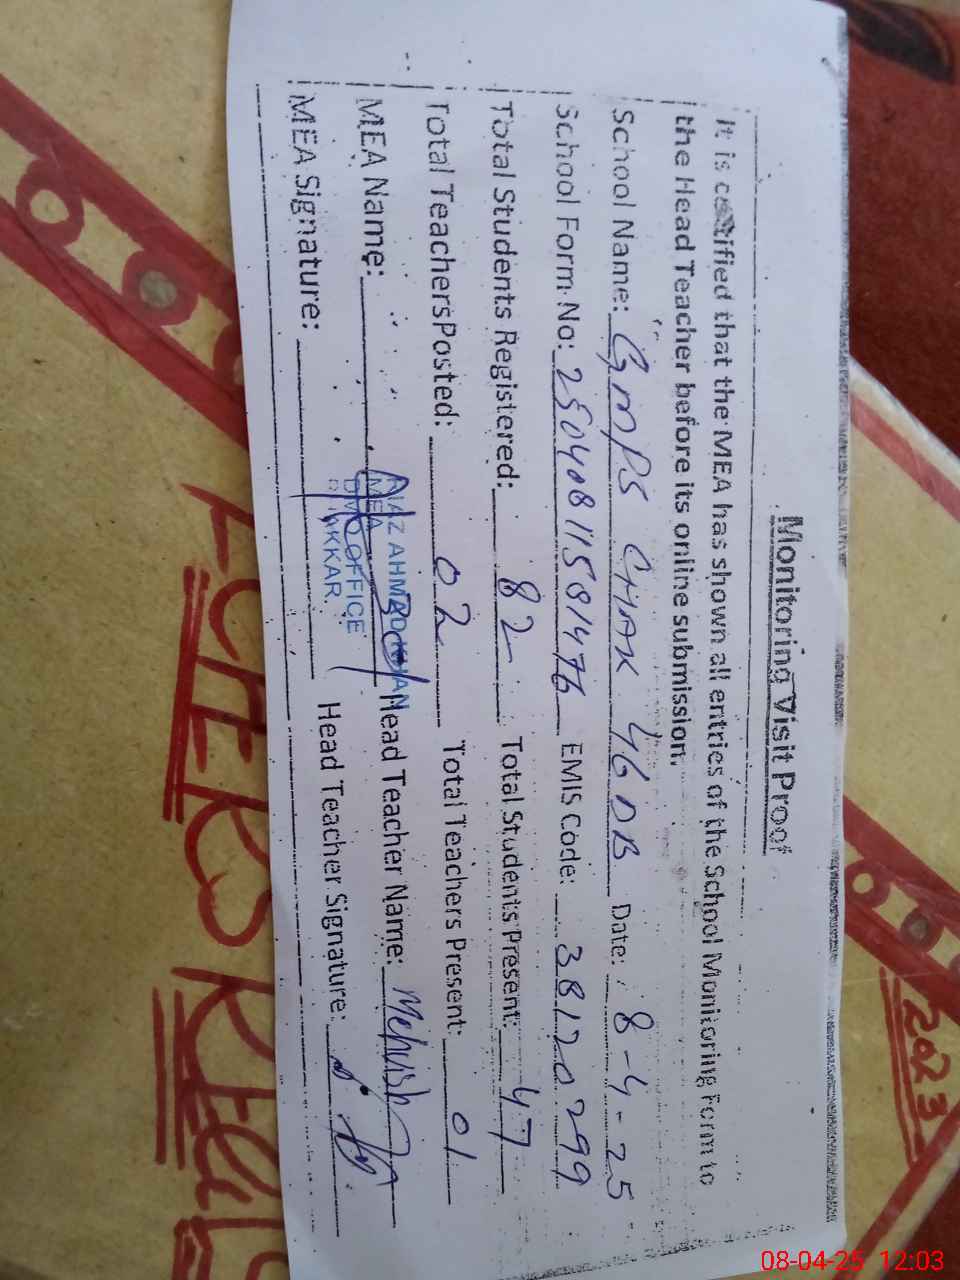 Monitoring Visit Proof
It is certified that the MEA has shown all entries of the School Monitoring Form to
the Head Teacher before its online submission.
School Name: GMPS CHAK 46 DB Date: 8-4-25
School Form No: 2504081115081476 EMIS Code: 38120299
Total Students Registered: 82 Total Students Present: 47
Total Teachers Posted: 02 Total Teachers Present: 01
MEA Name: Head Teacher Name: Mehwish
AIAZ AHMAD KHAN
MEA
DMO OFFICE
BHAKKAR.
MEA Signature: Head Teacher Signature:
2023
08-04-25 12:03